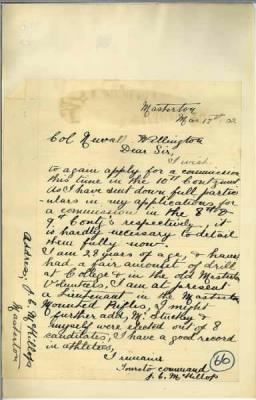 Masterton
Mar 13th 02
Col Newall Wellington
Dear Sir,
I wish
to again apply for a commission
this time in the 10th Contgnt
As I have sent down full partic-
ulars in my applications for
a commission in the 8th &
9th Cont's respectively, it
is hardly necessary to detail
them fully now.
I am 28 years of age, & have
had a fair amount of drill
at College & in the old Masterton
Volunteers. I am at present
a Lieutenant in the Masterton
Mounted Rifles, I might
further add, Mr Stuckey &
myself were elected out of 8
candidates, I have a good record
in athletics,
I remain
Yours to command
J. C. McKillop
Address J C McKillop
Masterton
66